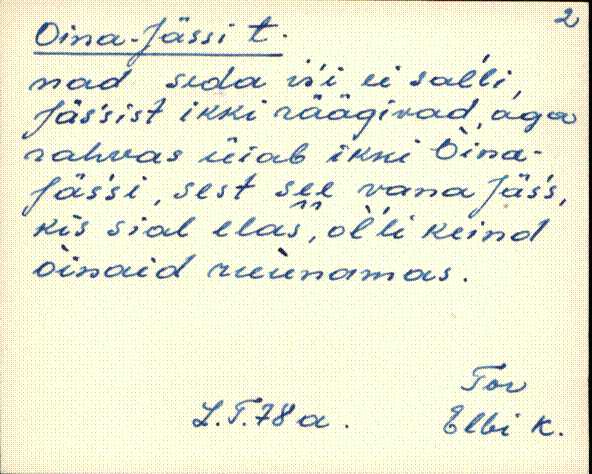 2
Oina-Jässi t.
nad seda is'i ei sal'li,
Jäs'sist ikki räägivad, aga
rahvas üiab ikki Òina-
Jäs'si, sest see vana Jäs's,
kis sial elas, ol'li keind
òinaid ruùnamas.
Tor
L.T.78a. Elbi k.